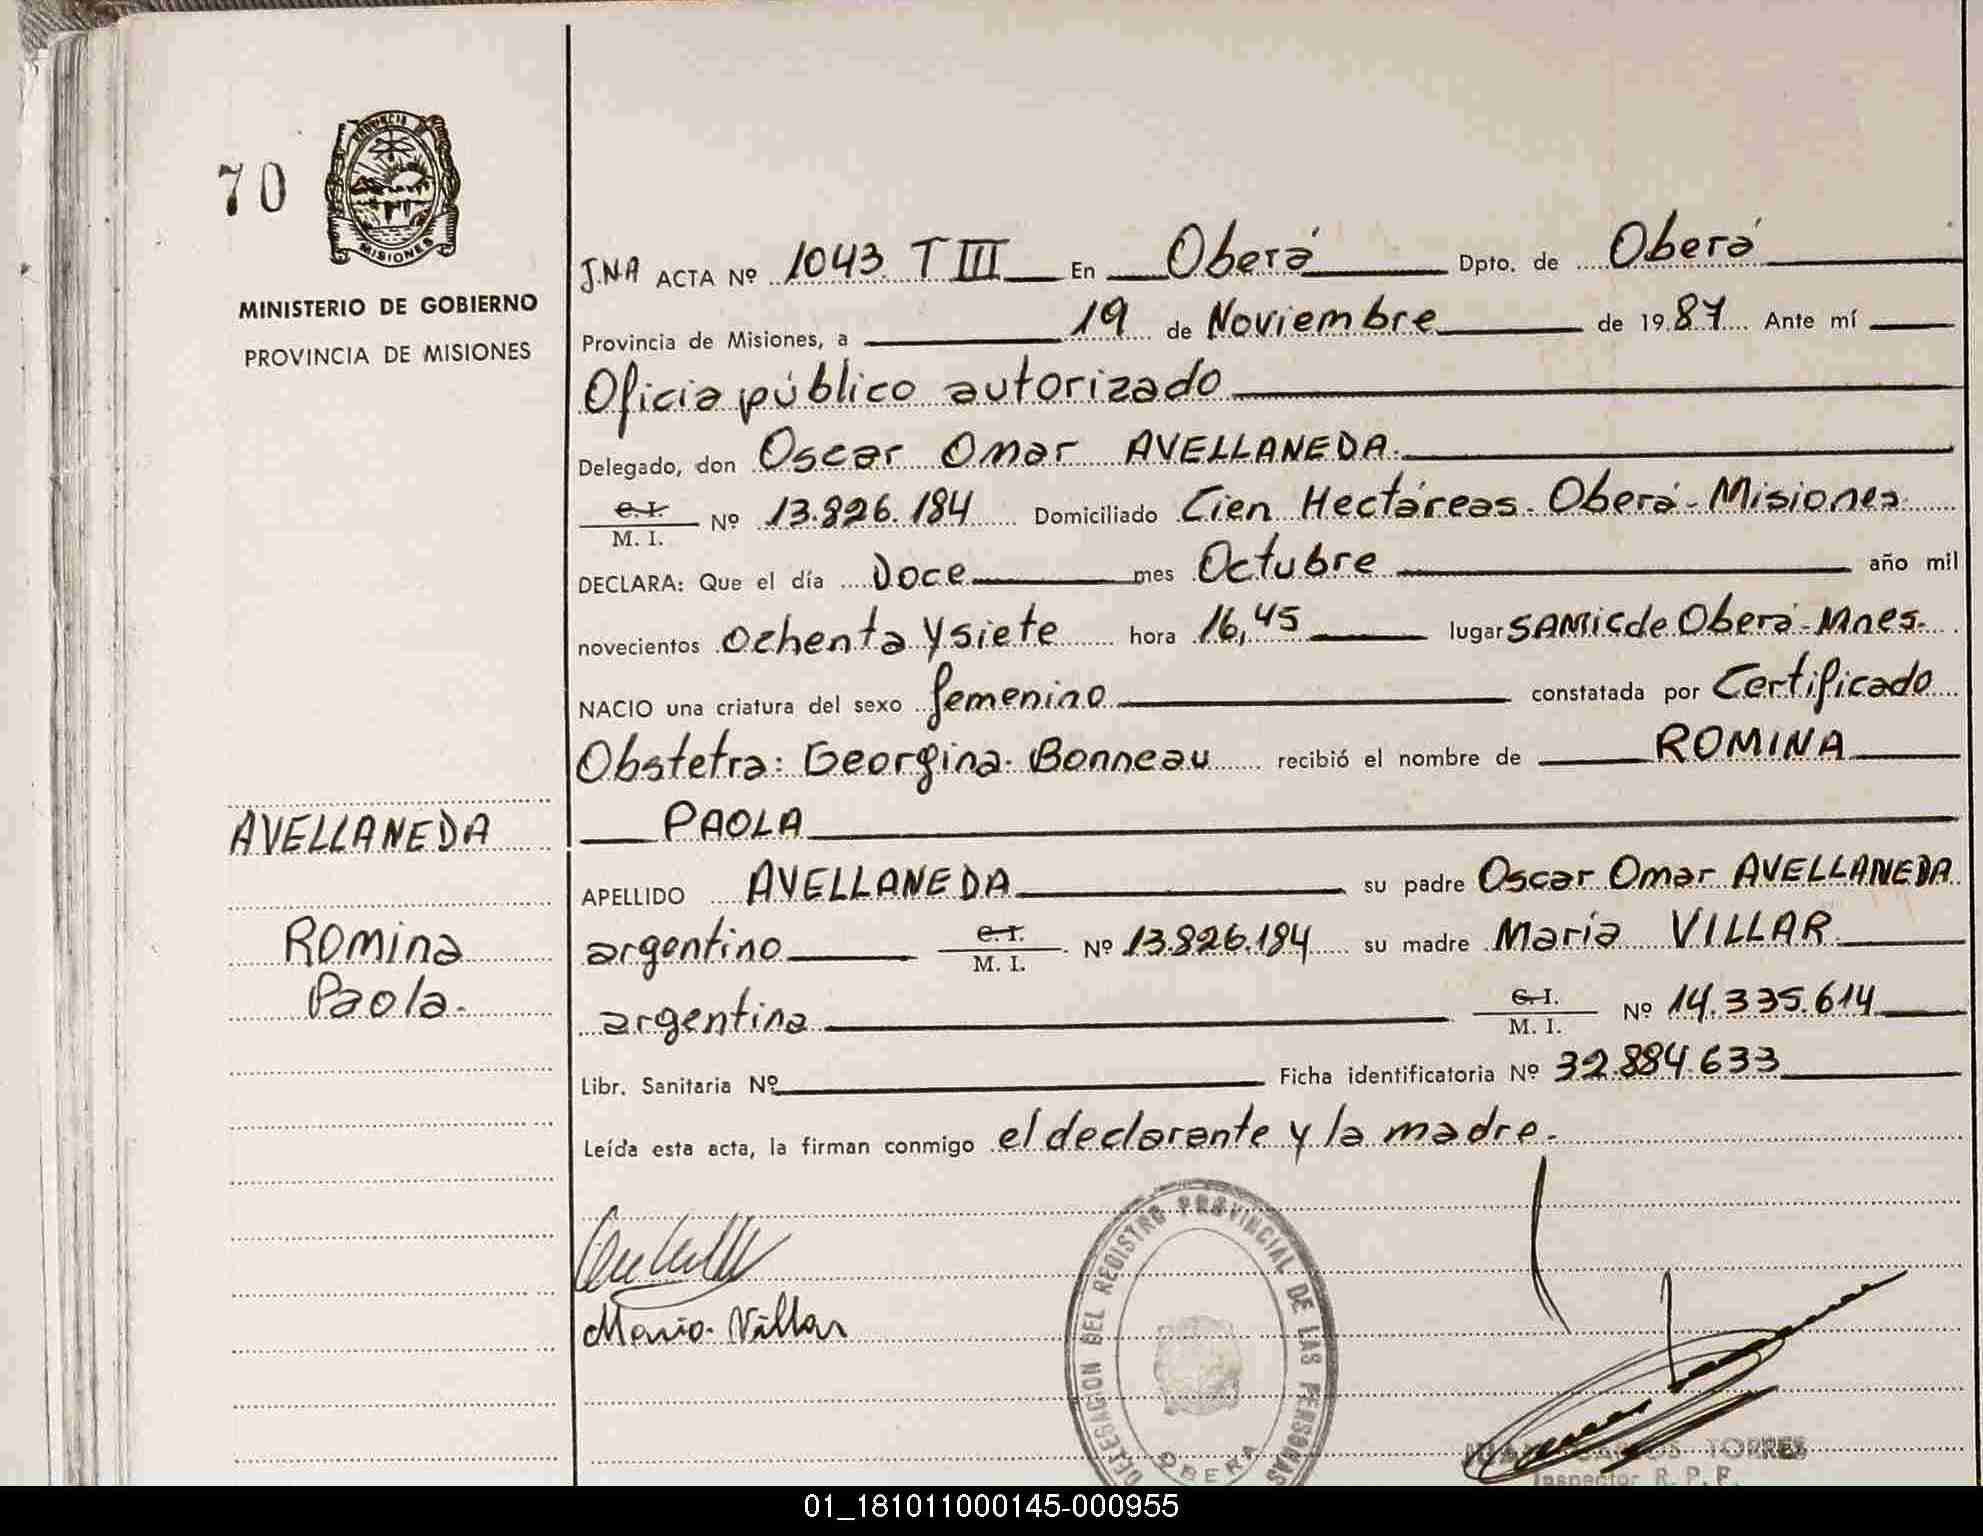 70
PROVINCIA DE
MISIONES
MINISTERIO DE GOBIERNO
PROVINCIA DE MISIONES
AVELLANEDA
Romina
Paola.
J.N.A ACTA Nº 1043 T III En Oberá Dpto. de Oberá
Provincia de Misiones, a 19 de Noviembre de 1987 Ante mí
Oficia público autorizado
Delegado, don Oscar Omar AVELLANEDA.
C. I.
M. I. Nº 13.826.184 Domiciliado Cien Hectáreas - Oberá - Misiones
DECLARA: Que el día Doce mes Octubre año mil
novecientos ochenta y siete hora 16,45 lugar SAMIC de Oberá - Mnes.
NACIO una criatura del sexo femenino constatada por Certificado
Obstetra: Georgina Bonneau recibió el nombre de ROMINA
PAOLA
APELLIDO AVELLANEDA su padre Oscar Omar AVELLANEDA
argentino C. I.
M. I. Nº 13.826.184 su madre María VILLAR
argentina C. I.
M. I. Nº 14.335.614
Libr. Sanitaria Nº Ficha identificatoria Nº 32.884.633
Leída esta acta, la firman conmigo el declarante y la madre.
Maria Villar
DELEGACION DEL REGISTRO PROVINCIAL DE LAS PERSONAS
OBERA
JUAN CARLOS TORRES
Inspector R. P. P.
01_181011000145-000955